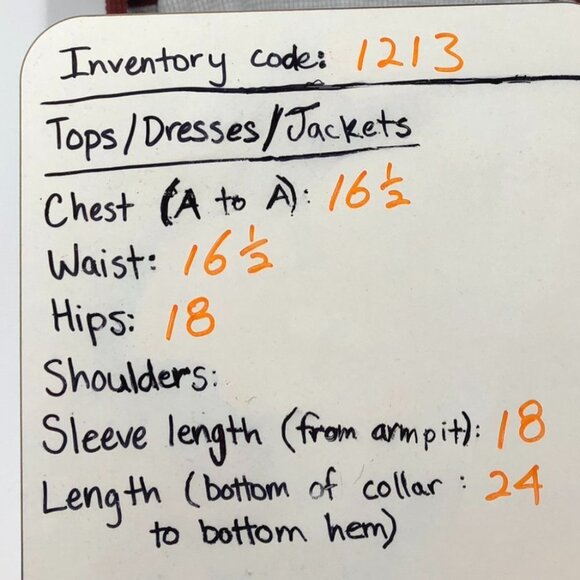 Inventory code: 1213
Tops/Dresses/Jackets
Chest (A to A): 16 1/2
Waist: 16 1/2
Hips: 18
Shoulders:
Sleeve length (from armpit): 18
Length (bottom of collar : 24
to bottom hem)